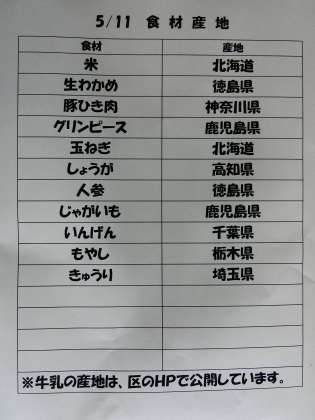 5/11 食材産地
食材 産地
米 北海道
生わかめ 徳島県
豚ひき肉 神奈川県
グリンピース 鹿児島県
玉ねぎ 北海道
しょうが 高知県
人参 徳島県
じゃがいも 鹿児島県
いんげん 千葉県
もやし 栃木県
きゅうり 埼玉県
※牛乳の産地は、区のHPで公開しています。